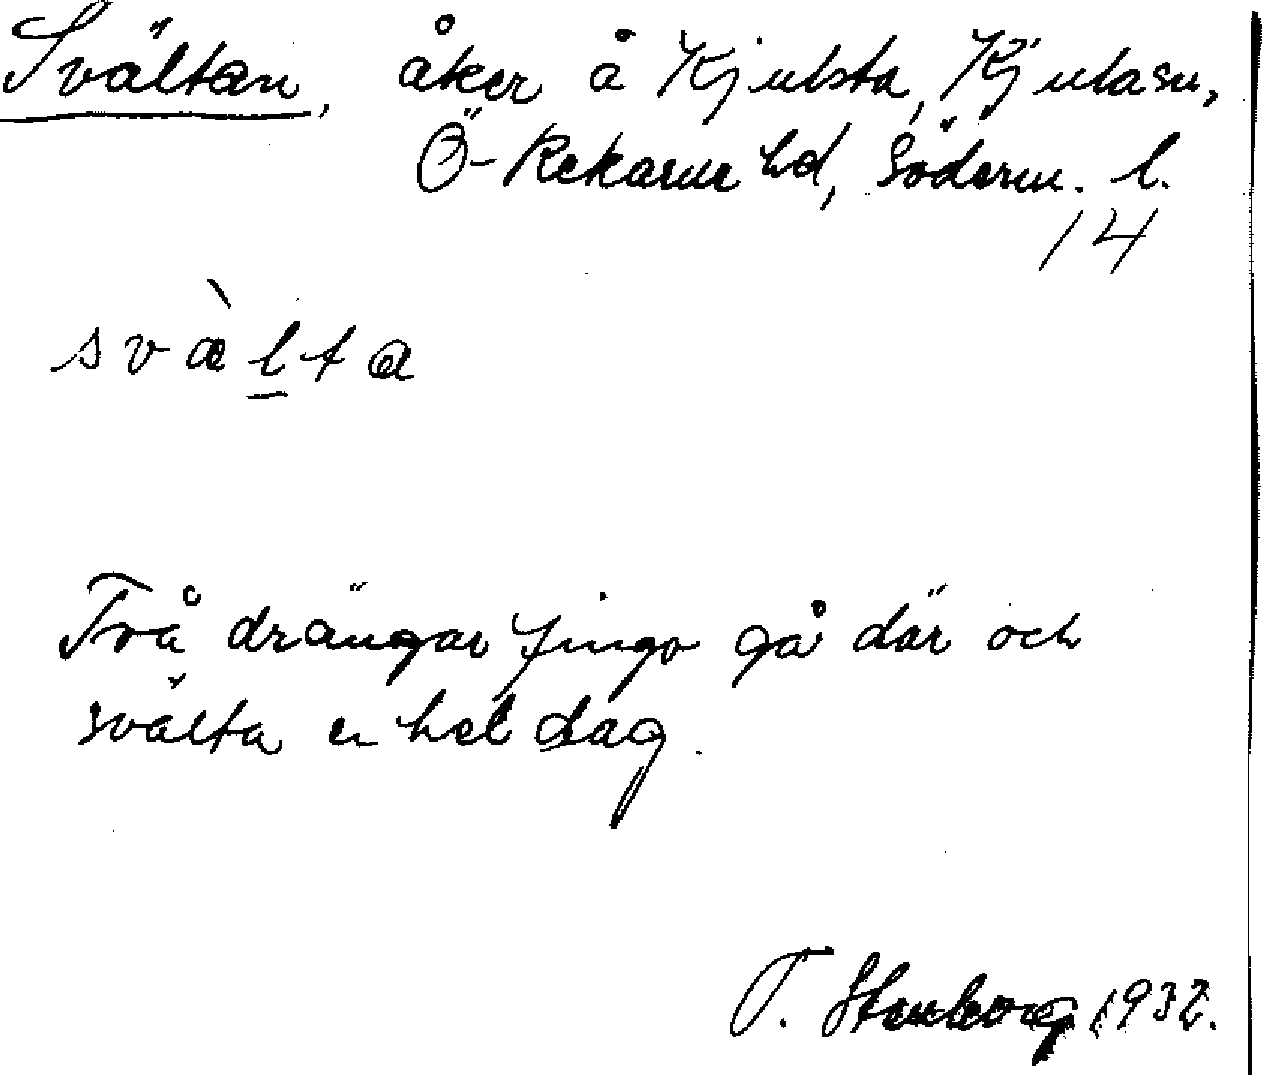 Svältan, åker å Kjulsta, Kjulasn,
Ö-Rekarne hd, Söderm. l.
14
svæ̀lta
Två drängar fingo gå där och
svälta en hel dag.
T. Stenborg 1932.